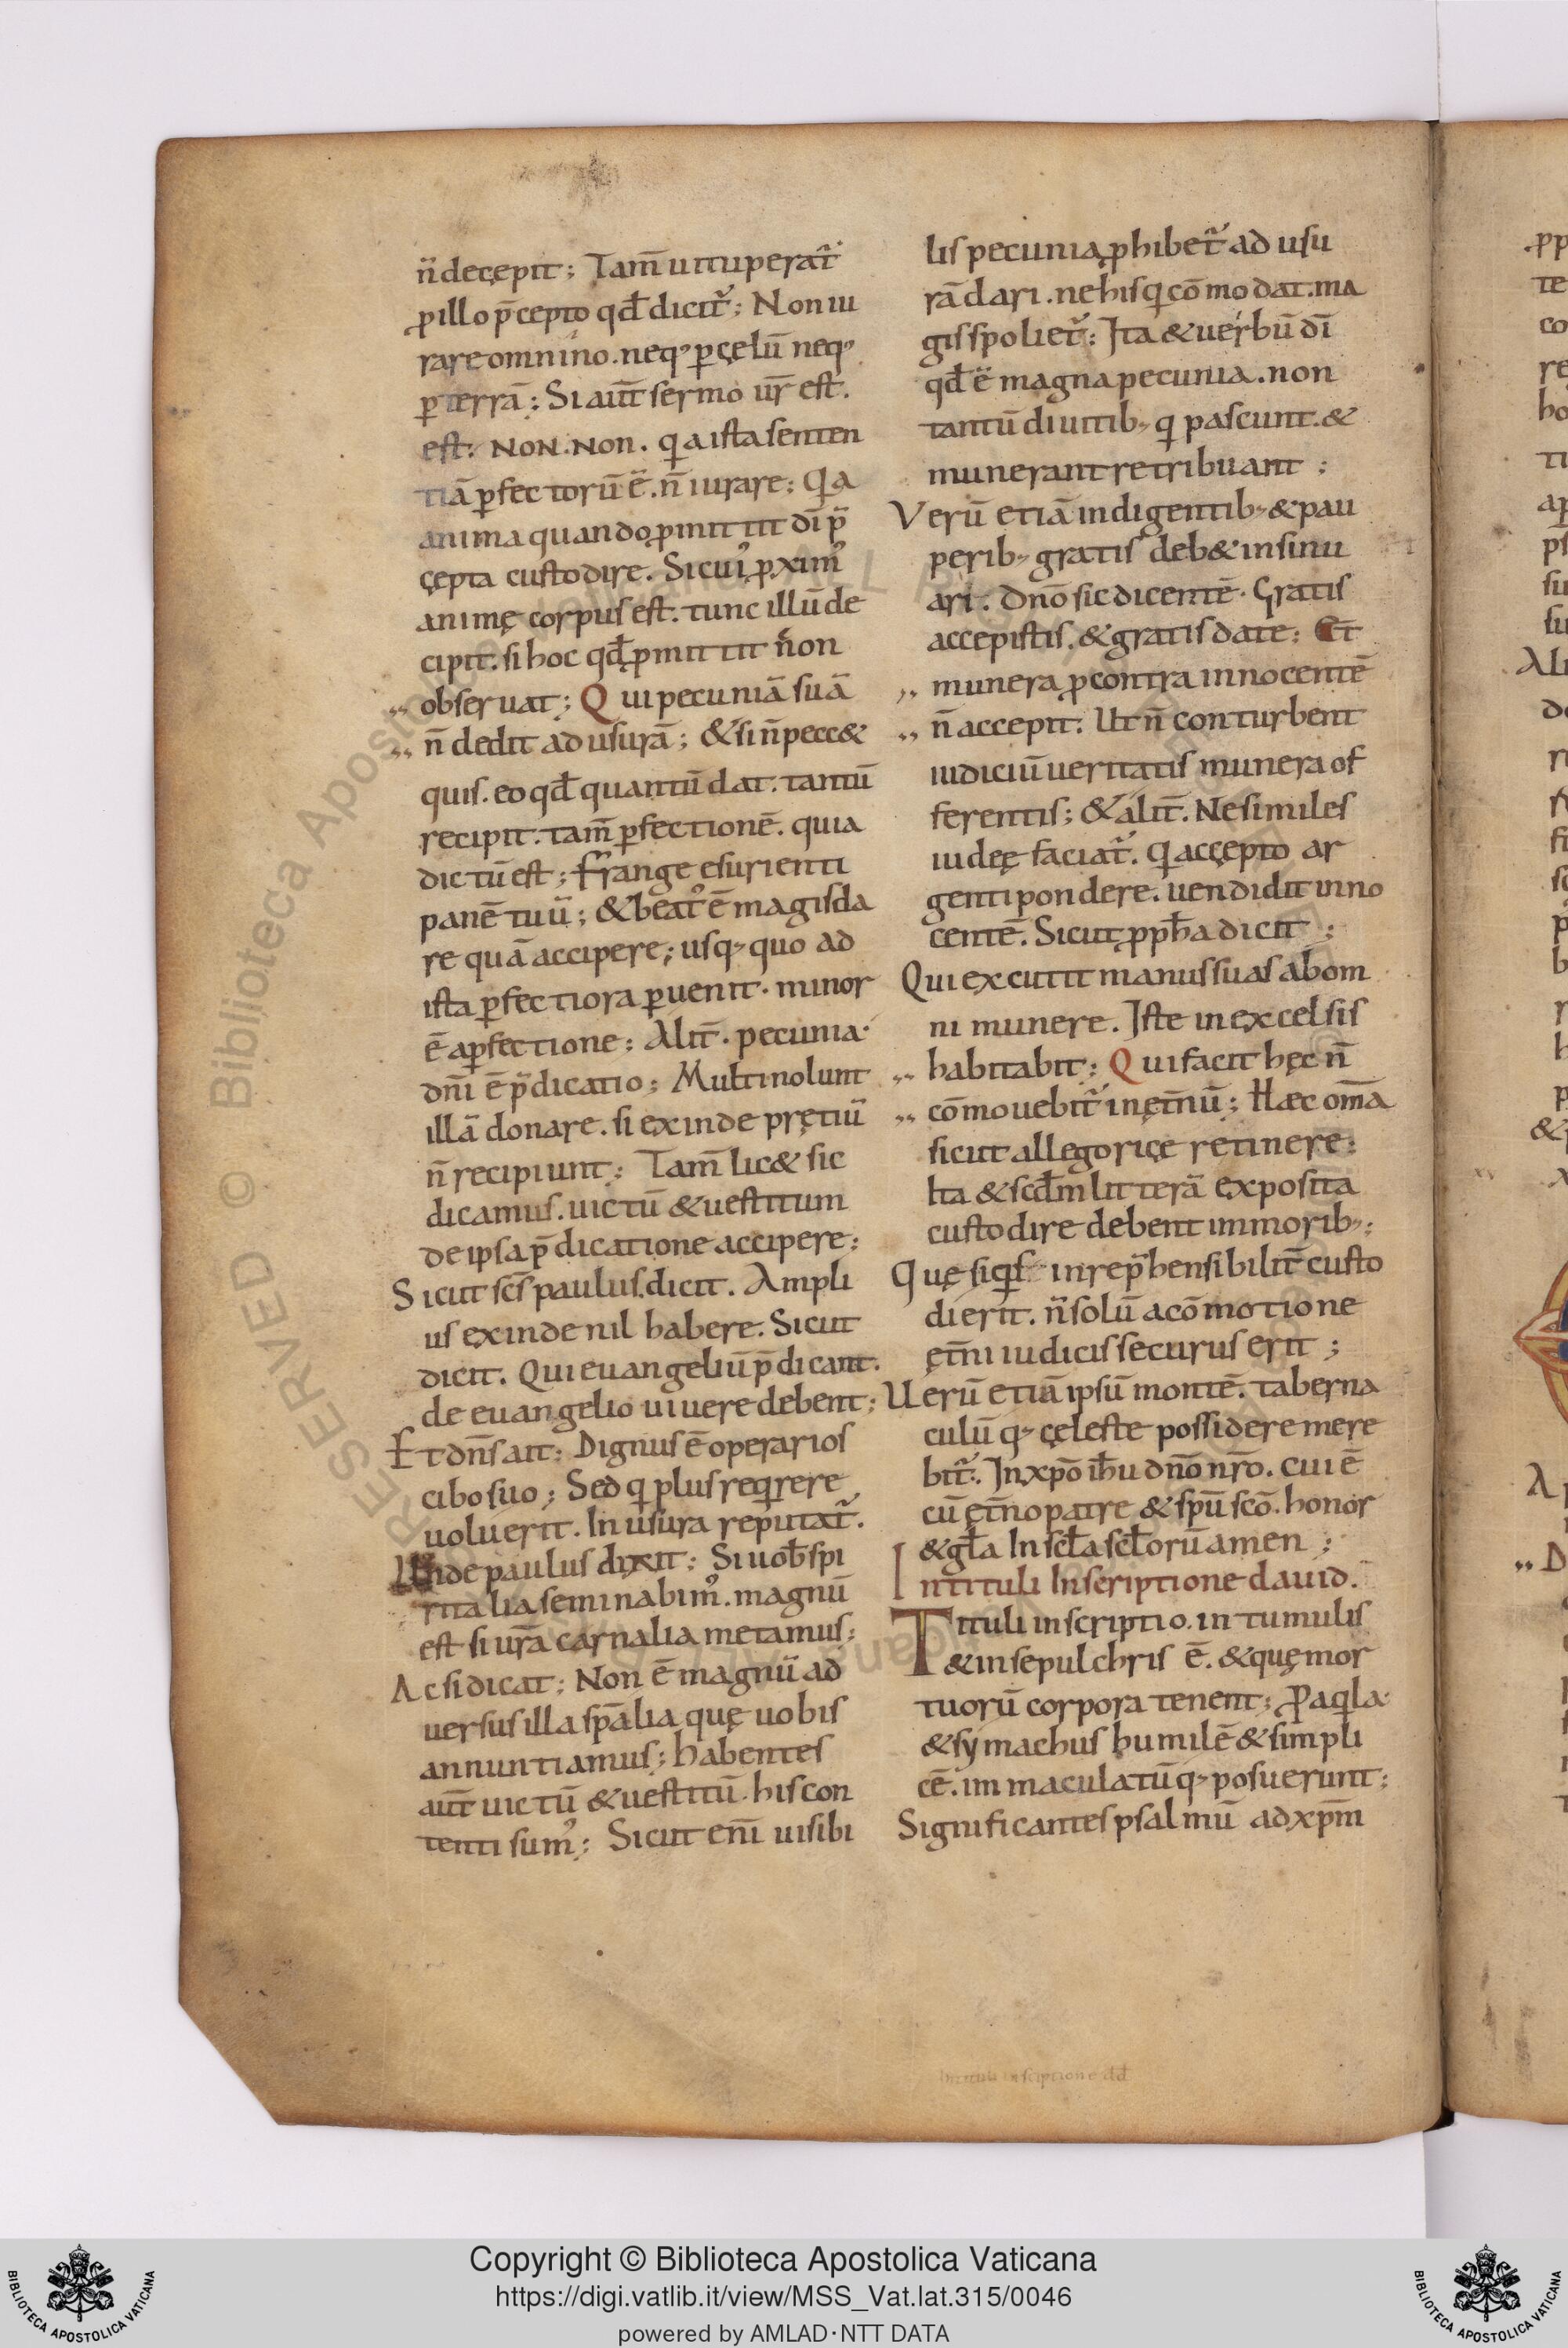 n̄ decepit; Tam̄ uituperat᷑
ꝓ illo p̄cepto qđ dicit᷑; Non iu
rare omnino. neq; ꝑ cęlū neq;
ꝑ terrā; Si aut̄ sermo ur̄ est.
est. NON. NON. q̇a ista senten
tiā ꝑfectorū ē. n̄ iurare; Q̇a
anima quando ꝓmittit dī p̄
cępta custodire. Sicut ꝓximꝰ
animę corpus est. tunc illū de
cipit. si hoc qđ ꝓmittit non
obseruat; Qui pecuniā suā
n̄ dedit ad usurā; & si n̄ pecc&
quis. eo qđ quantū dat. tantū
recipit. tam̄ ꝑfectionē. quia
dictū est; Frange esurienti
panē tuū; & beatꝰ ē magis da
re quā accipere; usq; quo ad
ista ꝑfectiora ꝑuenit. minor
ē a ꝑfectione; Alit̄. pecunia
dn̄i ē p̄dicatio; Multi nolunt
illā donare. si exinde prętiū
n̄ recipiunt; Tam̄ lic& sic
dicamus. uictū & uestitum
de ipsa p̄dicatione accipere;
Sicut sc̄s paulus dicit. Ampli
us exinde nil habere. Sicut
dicit. Qui euangeliū p̄dicant.
de euangelio uiuere debent;
Et dn̄s ait; Dignus ē operarios
cibo suo; Sed q̇ plus req̇rere
uoluerit. In usura reputat᷑.
Unde paulus dixit; Si uob̄ spi
ritalia seminabimꝰ. magnū
est si ur̄a carnalia metamus;
Ac si dicat; Non ē magnū ad
uersus illa sp̄alia quę uobis
annuntiamus; habentes
aut̄ uictū & uestitū. his con
tenti sumꝰ; Sicut enī uisibi
lis pecunia ꝓhibet᷑ ad usu
rā dari. ne his q̇ cōmodat. ma
gis spoliet᷑; Ita & uerbū dī
qđ ē magna pecunia. non
tantū diuitib; q̇ pascunt. &
munerant retribuant;
Verū etiā indigentib; & pau
perib; gratis deb& insinu
ari. Dn̄o sic dicentē. Gratis
accepistis. & gratis date; Et
munera ꝓ contra innocentē
n̄ accepit. Ut n̄ conturbent
iudiciū ueritatis munera of
ferentis; & alit̄. Ne similes
iudeę faciat᷑. q̇ accępto ar
genti pondere. uendidit inno
centē. Sicut ꝓph̄a dicit;
Qui excutit manus suas ab om
ni munere. Iste in excelsis
habitabit; Qui facit hęc n̄
cōmouebit᷑ in ęt̄nū; Hæc om̄a
sicut allegoricę retinere;
Ita & scđm litterā exposita
custodire debent in morib;;
Quę siq̇s inrep̄hensibilit̄ custo
dierit. n̄ solū a cōmotione
ęt̄ni iudicis securus erit;
Uerū etiā ipsū montē. taberna
culū q; cęleste possidere mere
bit᷑. In xp̄o ih̄u dn̄o nr̄o. cui ē
cū ęt̄no patre & sp̄u sc̄o. honor
& gl̄a In scl̄a scl̄orū amen;
Intituli Inscriptione dauid.
Tituli inscriptio. in tumulis
& in sepulchris ē. & quę mor
tuorū corpora tenent; Ꝓ aq̇la
& symachus humilē & simpli
cē. immaculatū q; posuerunt;
Significantes psalmū ad xp̄m
Copyright © Biblioteca Apostolica Vaticana
https://digi.vatlib.it/view/MSS_Vat.lat.315/0046
powered by AMLAD·NTT DATA